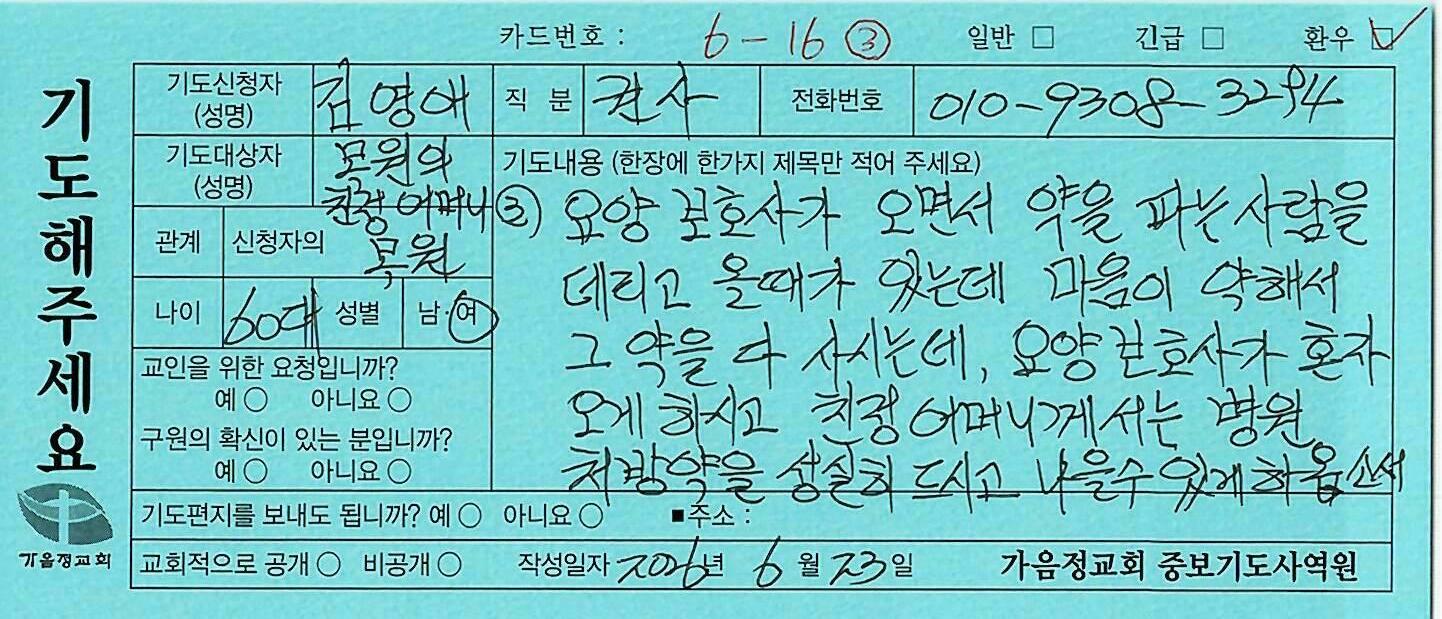 카드번호 : 6-16 ③ 일반 □ 긴급 □ 환우 ☑
기도해주세요
기도신청자 (성명) 김영애 직 분 권사 전화번호 010-9308-3294
기도대상자 (성명) 모원의 친정어머니
관계 신청자의 목원
나이 60대 성별 남·여
교인을 위한 요청입니까?
예 ○ 아니요 ○
구원의 확신이 있는 분입니까?
예 ○ 아니요 ○
기도내용 (한장에 한가지 제목만 적어 주세요)
③ 요양보호사가 오면서 약을 파는 사람을
데리고 올때가 있는데 마음이 약해서
그 약을 다 사시는데, 요양보호사가 혼자
오게 하시고 친정어머니께서는 병원
처방약을 성실히 드시고 나을수 있게 하옵소서
기도편지를 보내도 됩니까? 예 ○ 아니요 ○ ■주소 :
교회적으로 공개 ○ 비공개 ○ 작성일자 2026년 6월 23일 가음정교회 중보기도사역원
가음정교회